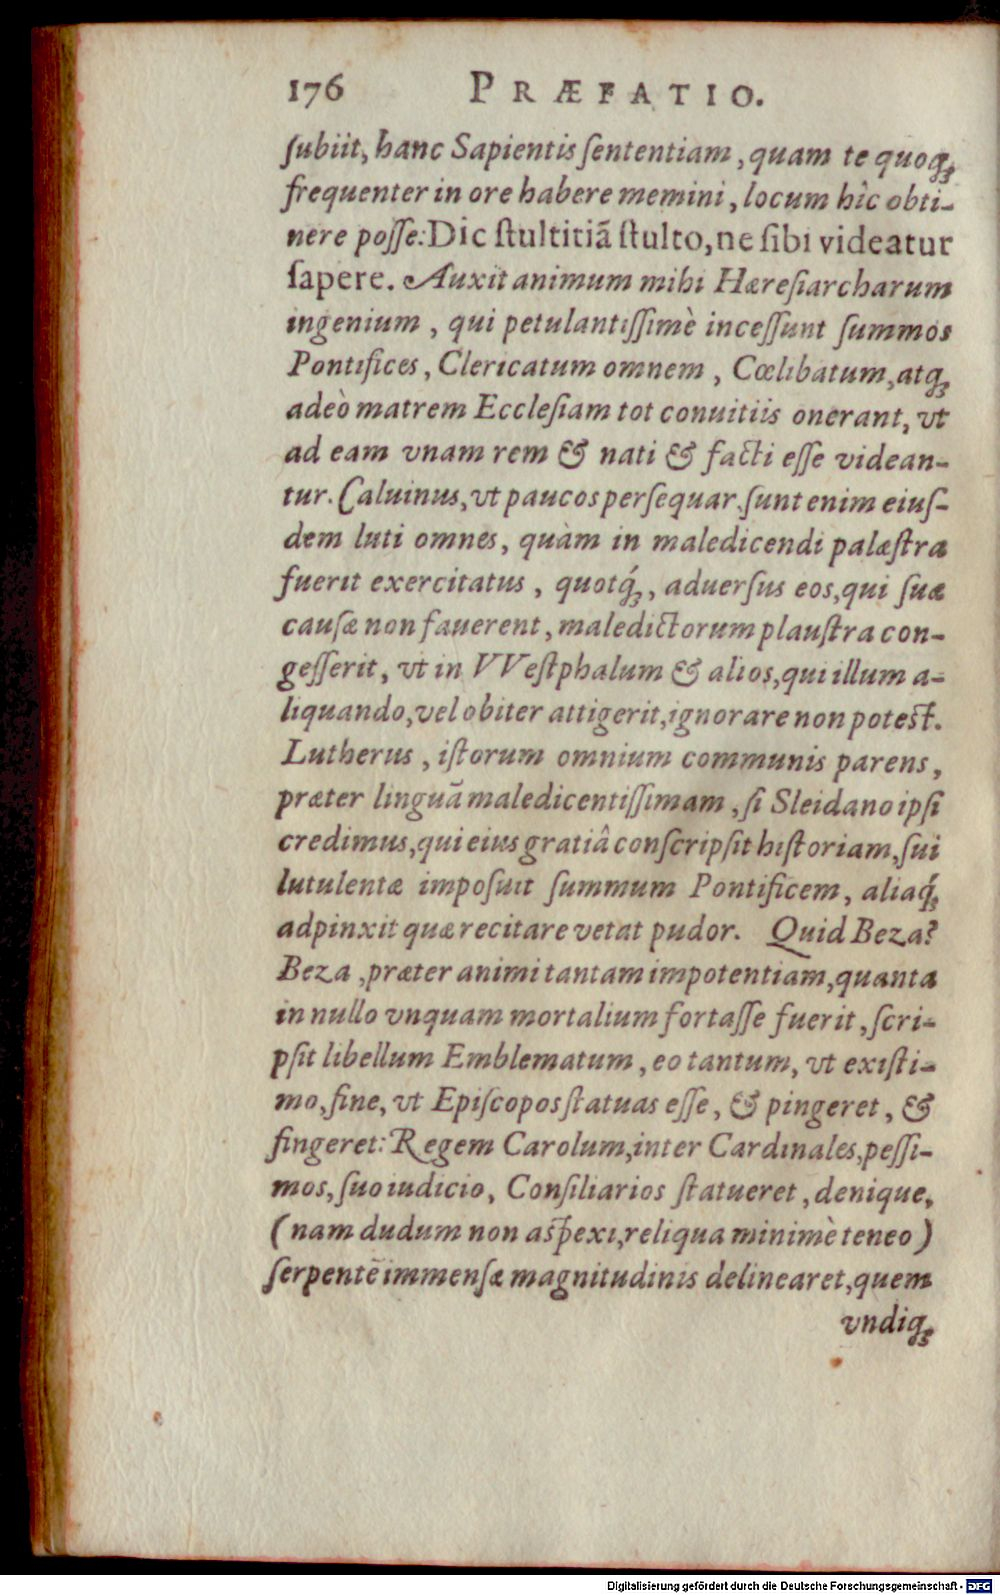 176 PRÆFATIO.
ſubiit, hanc Sapientis ſententiam, quam te quoq;
frequenter in ore habere memini, locum hîc obti-
nere poſſe: Dic ſtultitiã ſtulto, ne ſibi videatur
ſapere. Auxit animum mihi Hæreſiarcharum
ingenium, qui petulantiſſimè inceſſunt ſummos
Pontifices, Clericatum omnem, Cœlibatum, atq;
adeò matrem Eccleſiam tot conuitiis onerant, vt
ad eam vnam rem & nati & facti eſſe videan-
tur. Caluinus, vt paucos perſequar, ſunt enim eiuſ-
dem luti omnes, quàm in maledicendi palæſtra
fuerit exercitatus, quotq́;, aduerſus eos, qui ſuæ
cauſæ non fauerent, maledictorum plauſtra con-
geſſerit, vt in VVeſtphalum & alios, qui illum a-
liquando, vel obiter attigerit, ignorare non poteſt.
Lutherus, iſtorum omnium communis parens,
præter linguã maledicentiſſimam, ſi Sleidano ipſi
credimus, qui eius gratiâ conſcripſit hiſtoriam, ſui
lutulentæ impoſuit ſummum Pontificem, aliaq́;
adpinxit quæ recitare vetat pudor. Quid Beza?
Beza, præter animi tantam impotentiam, quanta
in nullo vnquam mortalium fortaſſe fuerit, ſcri-
pſit libellum Emblematum, eo tantum, vt exiſti-
mo, fine, vt Epiſcopos ſtatuas eſſe, & pingeret, &
fingeret: Regem Carolum, inter Cardinales, peſſi-
mos, ſuo iudicio, Conſiliarios ſtatueret, denique,
(nam dudum non aſpexi, reliqua minimè teneo)
ſerpentẽ immenſæ magnitudinis delinearet, quem
vndiq;
Digitalisierung gefördert durch die Deutsche Forschungsgemeinschaft - DFG